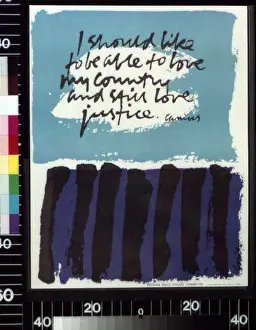 I should like
to be able to love
my country
and still love
justice. Camus
40
20
0
20
40
60
40
20
0
20
40